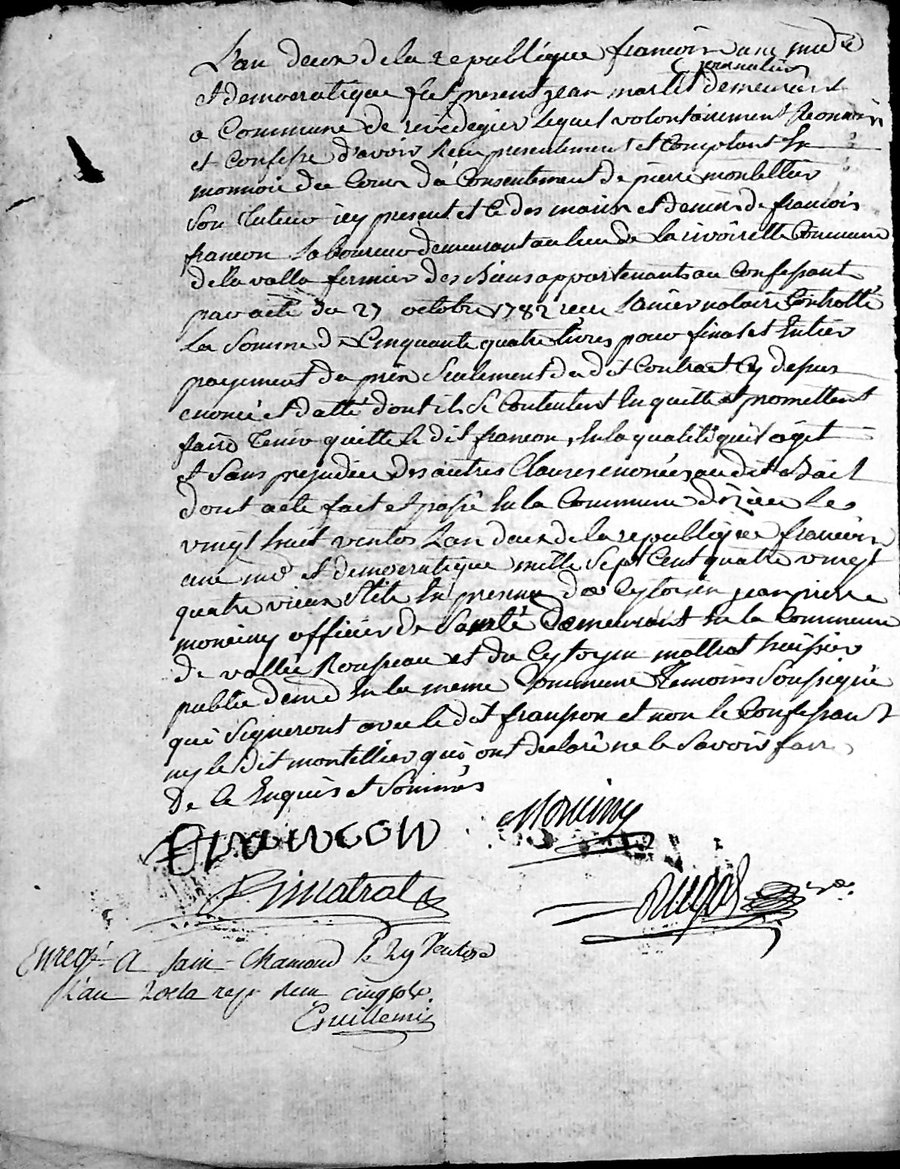 L'an deux de la republique francoise une indt
journalier
et democratique fut present jean martel demeurant
a Commune de lequel volontairement Reconnoit
et Confesse d'avoir Receu presentement et Comptant En
monnoie de Cour du Consentement de pierre montellier
Son tuteur icy present et ce des mains et denier de francois
francon Laboureur demeurant au lieu de La rivoirette Commune
de la valla fermier des Biens appartenants au Confessant
par acte du 27 octobre 1782 receu notaire Controllé
La Somme de Cinquante quatre livres pour final et Entier
payement du prix Seulement du dit Contract Cy dessus
enoncé et datté dont ils Se Contentent En quitte et promettent
faire tenir quitte le dit francon, En la qualité qu'il agit
et Sans prejudice des autres Clauses enoncées au dit Bail
dont acte fait et passé En la Commune d'izieu les
vingt huit ventos L'an deux de la republique francoise
une ind et democratique mille Sept Cent quatre vingt
quatre vieux Stile En presence du Cytoyen jean pierre
monciny officier de Santé demeurant En la Commune
de vallée Rousseau et du Cytoyen matrat huissier
publie deme En la meme Commune temoins Soussigné
qui Signeront avec le dit franson et non le Confessant
ny le dit montellier qui ont declaré ne le Savoir faire
De Ce Enquis et Sommés
francon Monciny
Pimatrat
Enregé A Saint Chamond le 29 Ventose
L'an 2 de la rep. Reçu cinq sols.
Guillemin